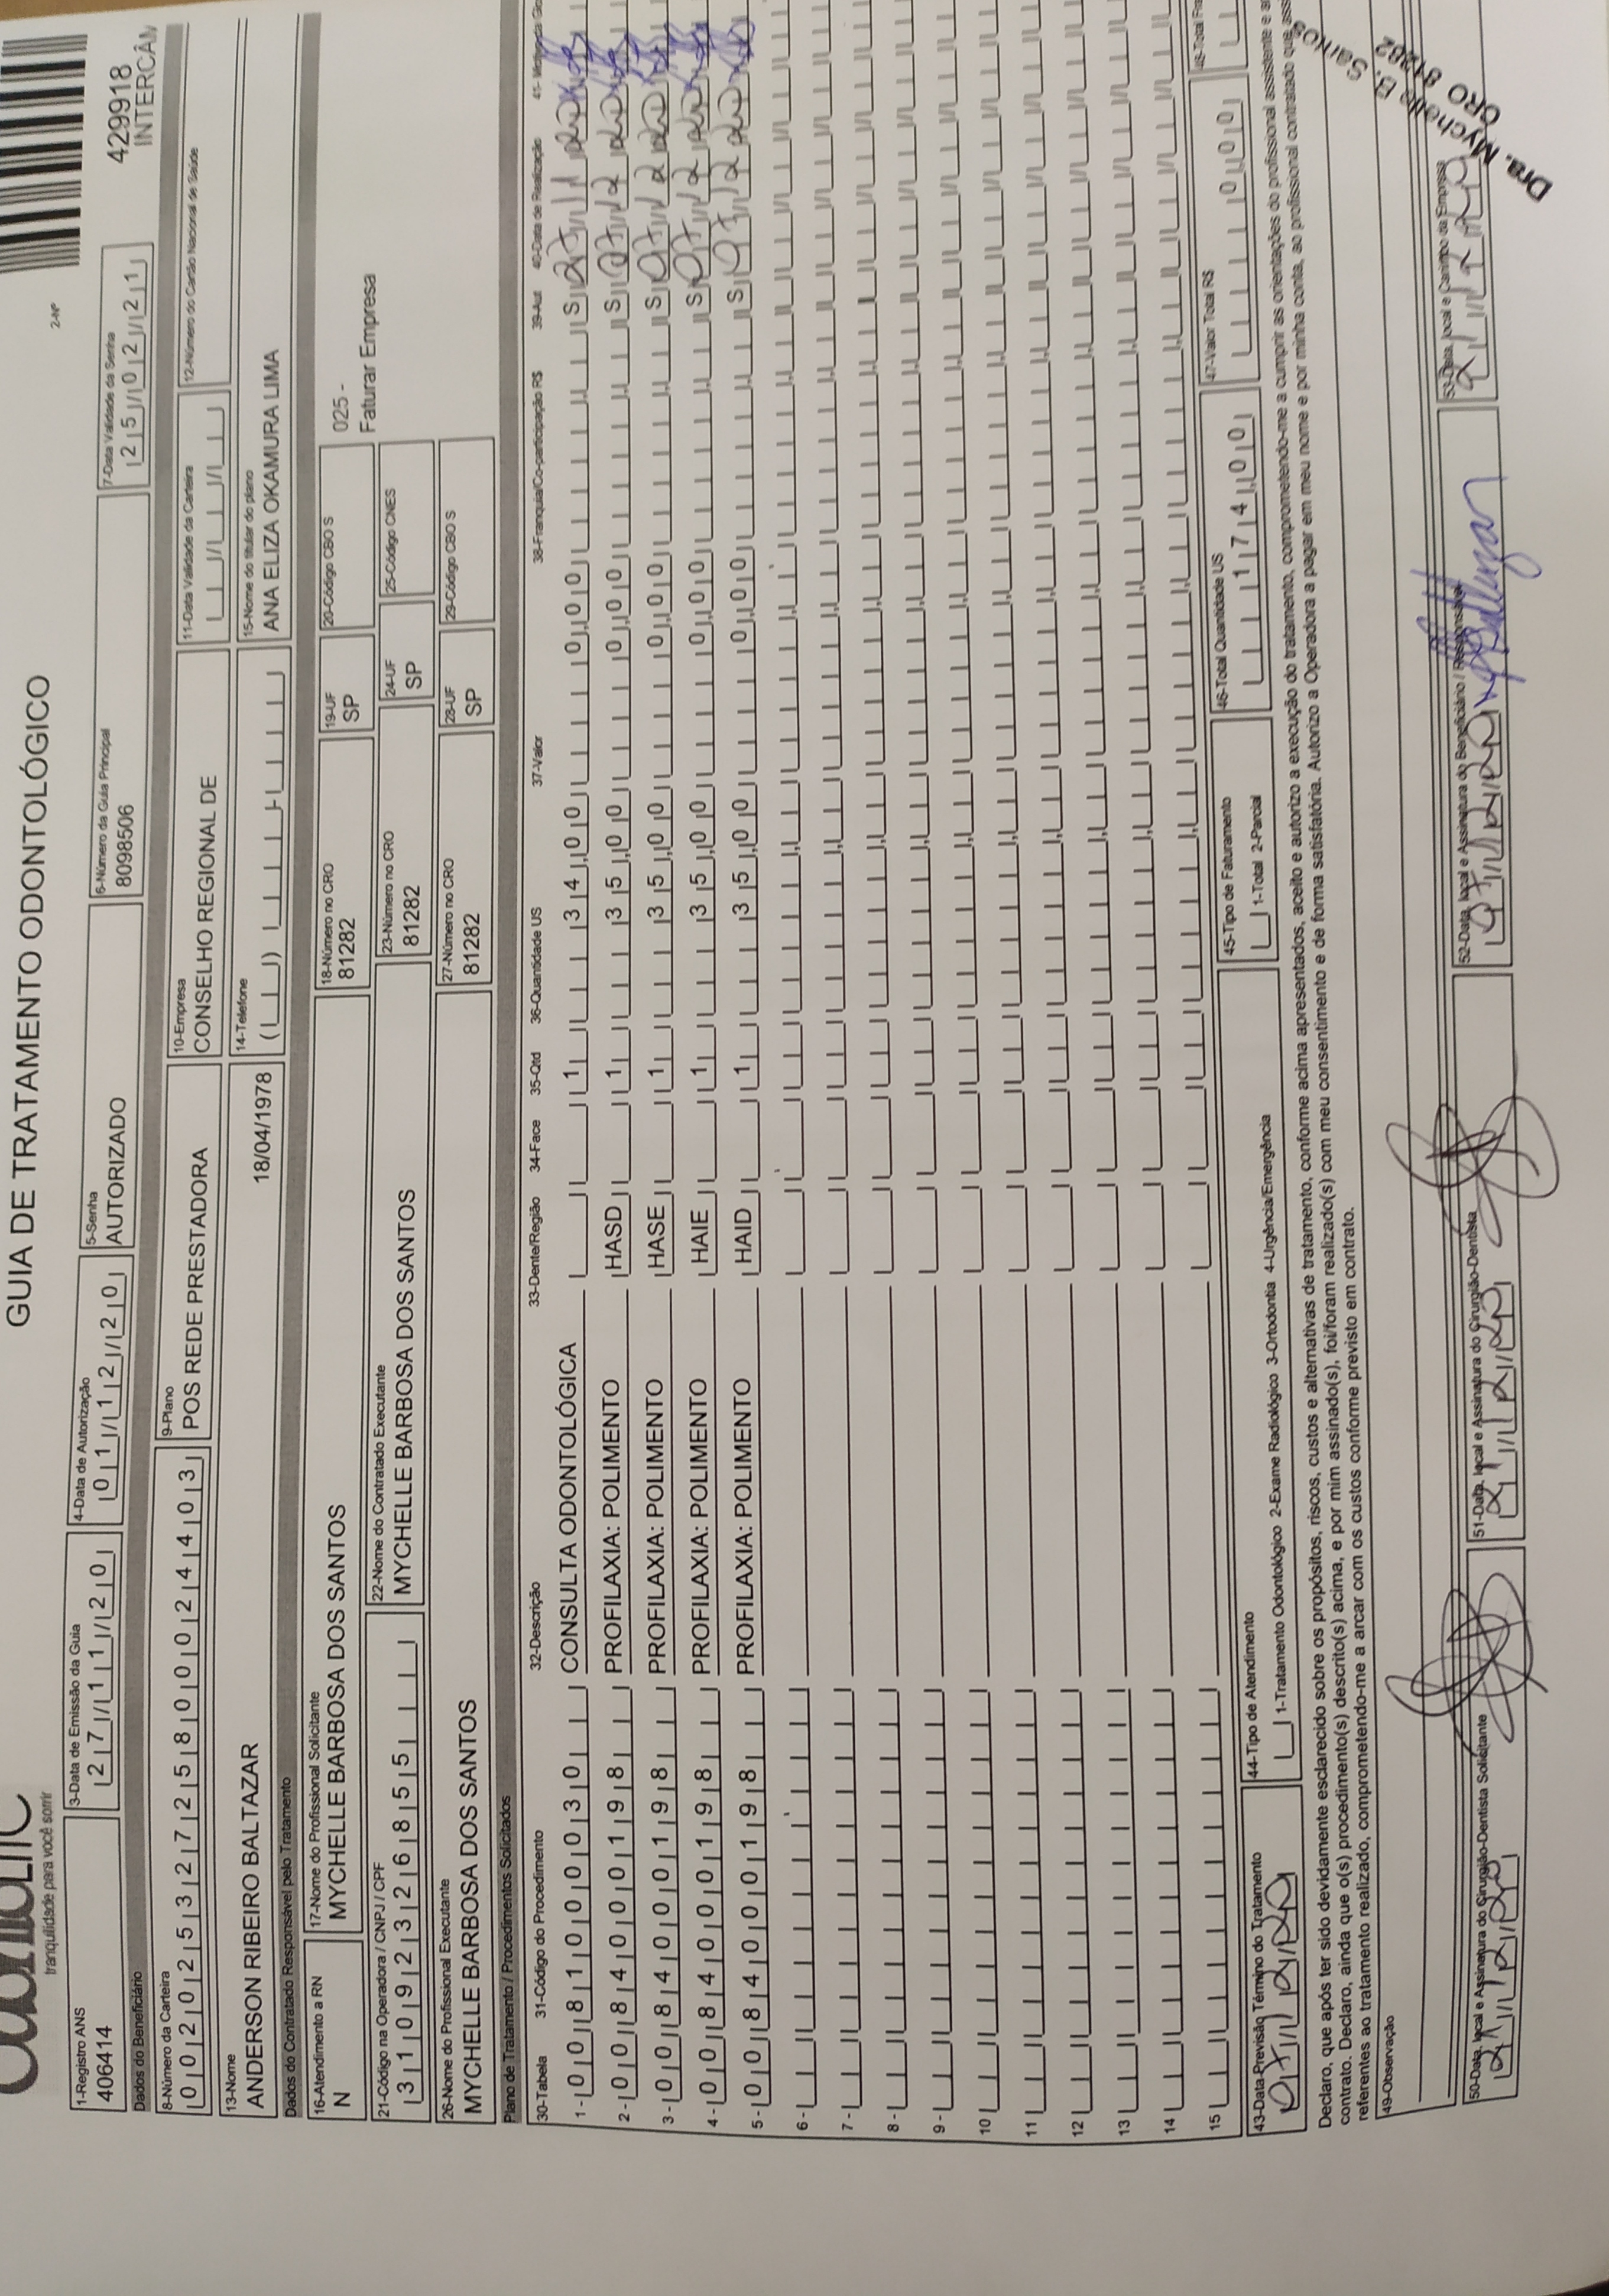 GUIA DE TRATAMENTO ODONTOLÓGICO
tranquilidade para você sorrir
2-Nº
429918
INTERCÂM
1-Registro ANS
406414
3-Data de Emissão da Guia
27/11/20
4-Data de Autorização
01/12/20
5-Senha
AUTORIZADO
6-Número da Guia Principal
8098506
7-Data Validade da Senha
25/02/21
Dados do Beneficiário
8-Número da Carteira
00202532725800024403
9-Plano
POS REDE PRESTADORA
10-Empresa
CONSELHO REGIONAL DE
11-Data Validade da Carteira
12-Número do Cartão Nacional de Saúde
13-Nome
ANDERSON RIBEIRO BALTAZAR
18/04/1978
14-Telefone
15-Nome do titular do plano
ANA ELIZA OKAMURA LIMA
Dados do Contratado Responsável pelo Tratamento
16-Atendimento a RN
N
17-Nome do Profissional Solicitante
MYCHELLE BARBOSA DOS SANTOS
18-Número no CRO
81282
19-UF
SP
20-Código CBO S
025 -
Faturar Empresa
21-Código na Operadora / CNPJ / CPF
31092326855
22-Nome do Contratado Executante
MYCHELLE BARBOSA DOS SANTOS
23-Número no CRO
81282
24-UF
SP
25-Código CNES
26-Nome do Profissional Executante
MYCHELLE BARBOSA DOS SANTOS
27-Número no CRO
81282
28-UF
SP
29-Código CBO S
Plano de Tratamento / Procedimentos Solicitados
30-Tabela 31-Código do Procedimento 32-Descrição 33-Dente/Região 34-Face 35-Qtd 36-Quantidade US 37-Valor 38-Franquia/Co-participação R$ 39-Aut 40-Data de Realização
1 - 00 81000030 CONSULTA ODONTOLÓGICA 1 34,00 0,00 S
2 - 00 84000198 PROFILAXIA: POLIMENTO HASD 1 35,00 0,00 S 07/12
3 - 00 84000198 PROFILAXIA: POLIMENTO HASE 1 35,00 0,00 S 07/12
4 - 00 84000198 PROFILAXIA: POLIMENTO HAIE 1 35,00 0,00 S 07/12
5 - 00 84000198 PROFILAXIA: POLIMENTO HAID 1 35,00 0,00 S 07/12
6 -
7 -
8 -
9 -
10
11
12
13
14
15
43-Data Previsão Término do Tratamento
07/12/20
44-Tipo de Atendimento
1-Tratamento Odontológico 2-Exame Radiológico 3-Ortodontia 4-Urgência/Emergência
45-Tipo de Faturamento
1-Total 2-Parcial
46-Total Quantidade US
174,00
47-Valor Total R$
0,00
Declaro, que após ter sido devidamente esclarecido sobre os propósitos, riscos, custos e alternativas de tratamento, conforme acima apresentados, aceito e autorizo a execução do tratamento, comprometendo-me a cumprir as orientações do profissional assistente e
contrato. Declaro, ainda que o(s) procedimento(s) descrito(s) acima, e por mim assinado(s), foi/foram realizado(s) com meu consentimento e de forma satisfatória. Autorizo a Operadora a pagar em meu nome e por minha conta, ao profissional contratado que
referentes ao tratamento realizado, comprometendo-me a arcar com os custos conforme previsto em contrato.
49-Observação
50-Data, local e Assinatura do Cirurgião-Dentista Solicitante
51-Data, local e Assinatura do Cirurgião-Dentista
52-Data, local e Assinatura do Beneficiário / Responsável
07/12/20
53-Data, local e Carimbo da Empresa
Dra. Mychelle B. Santos
CRO 81282